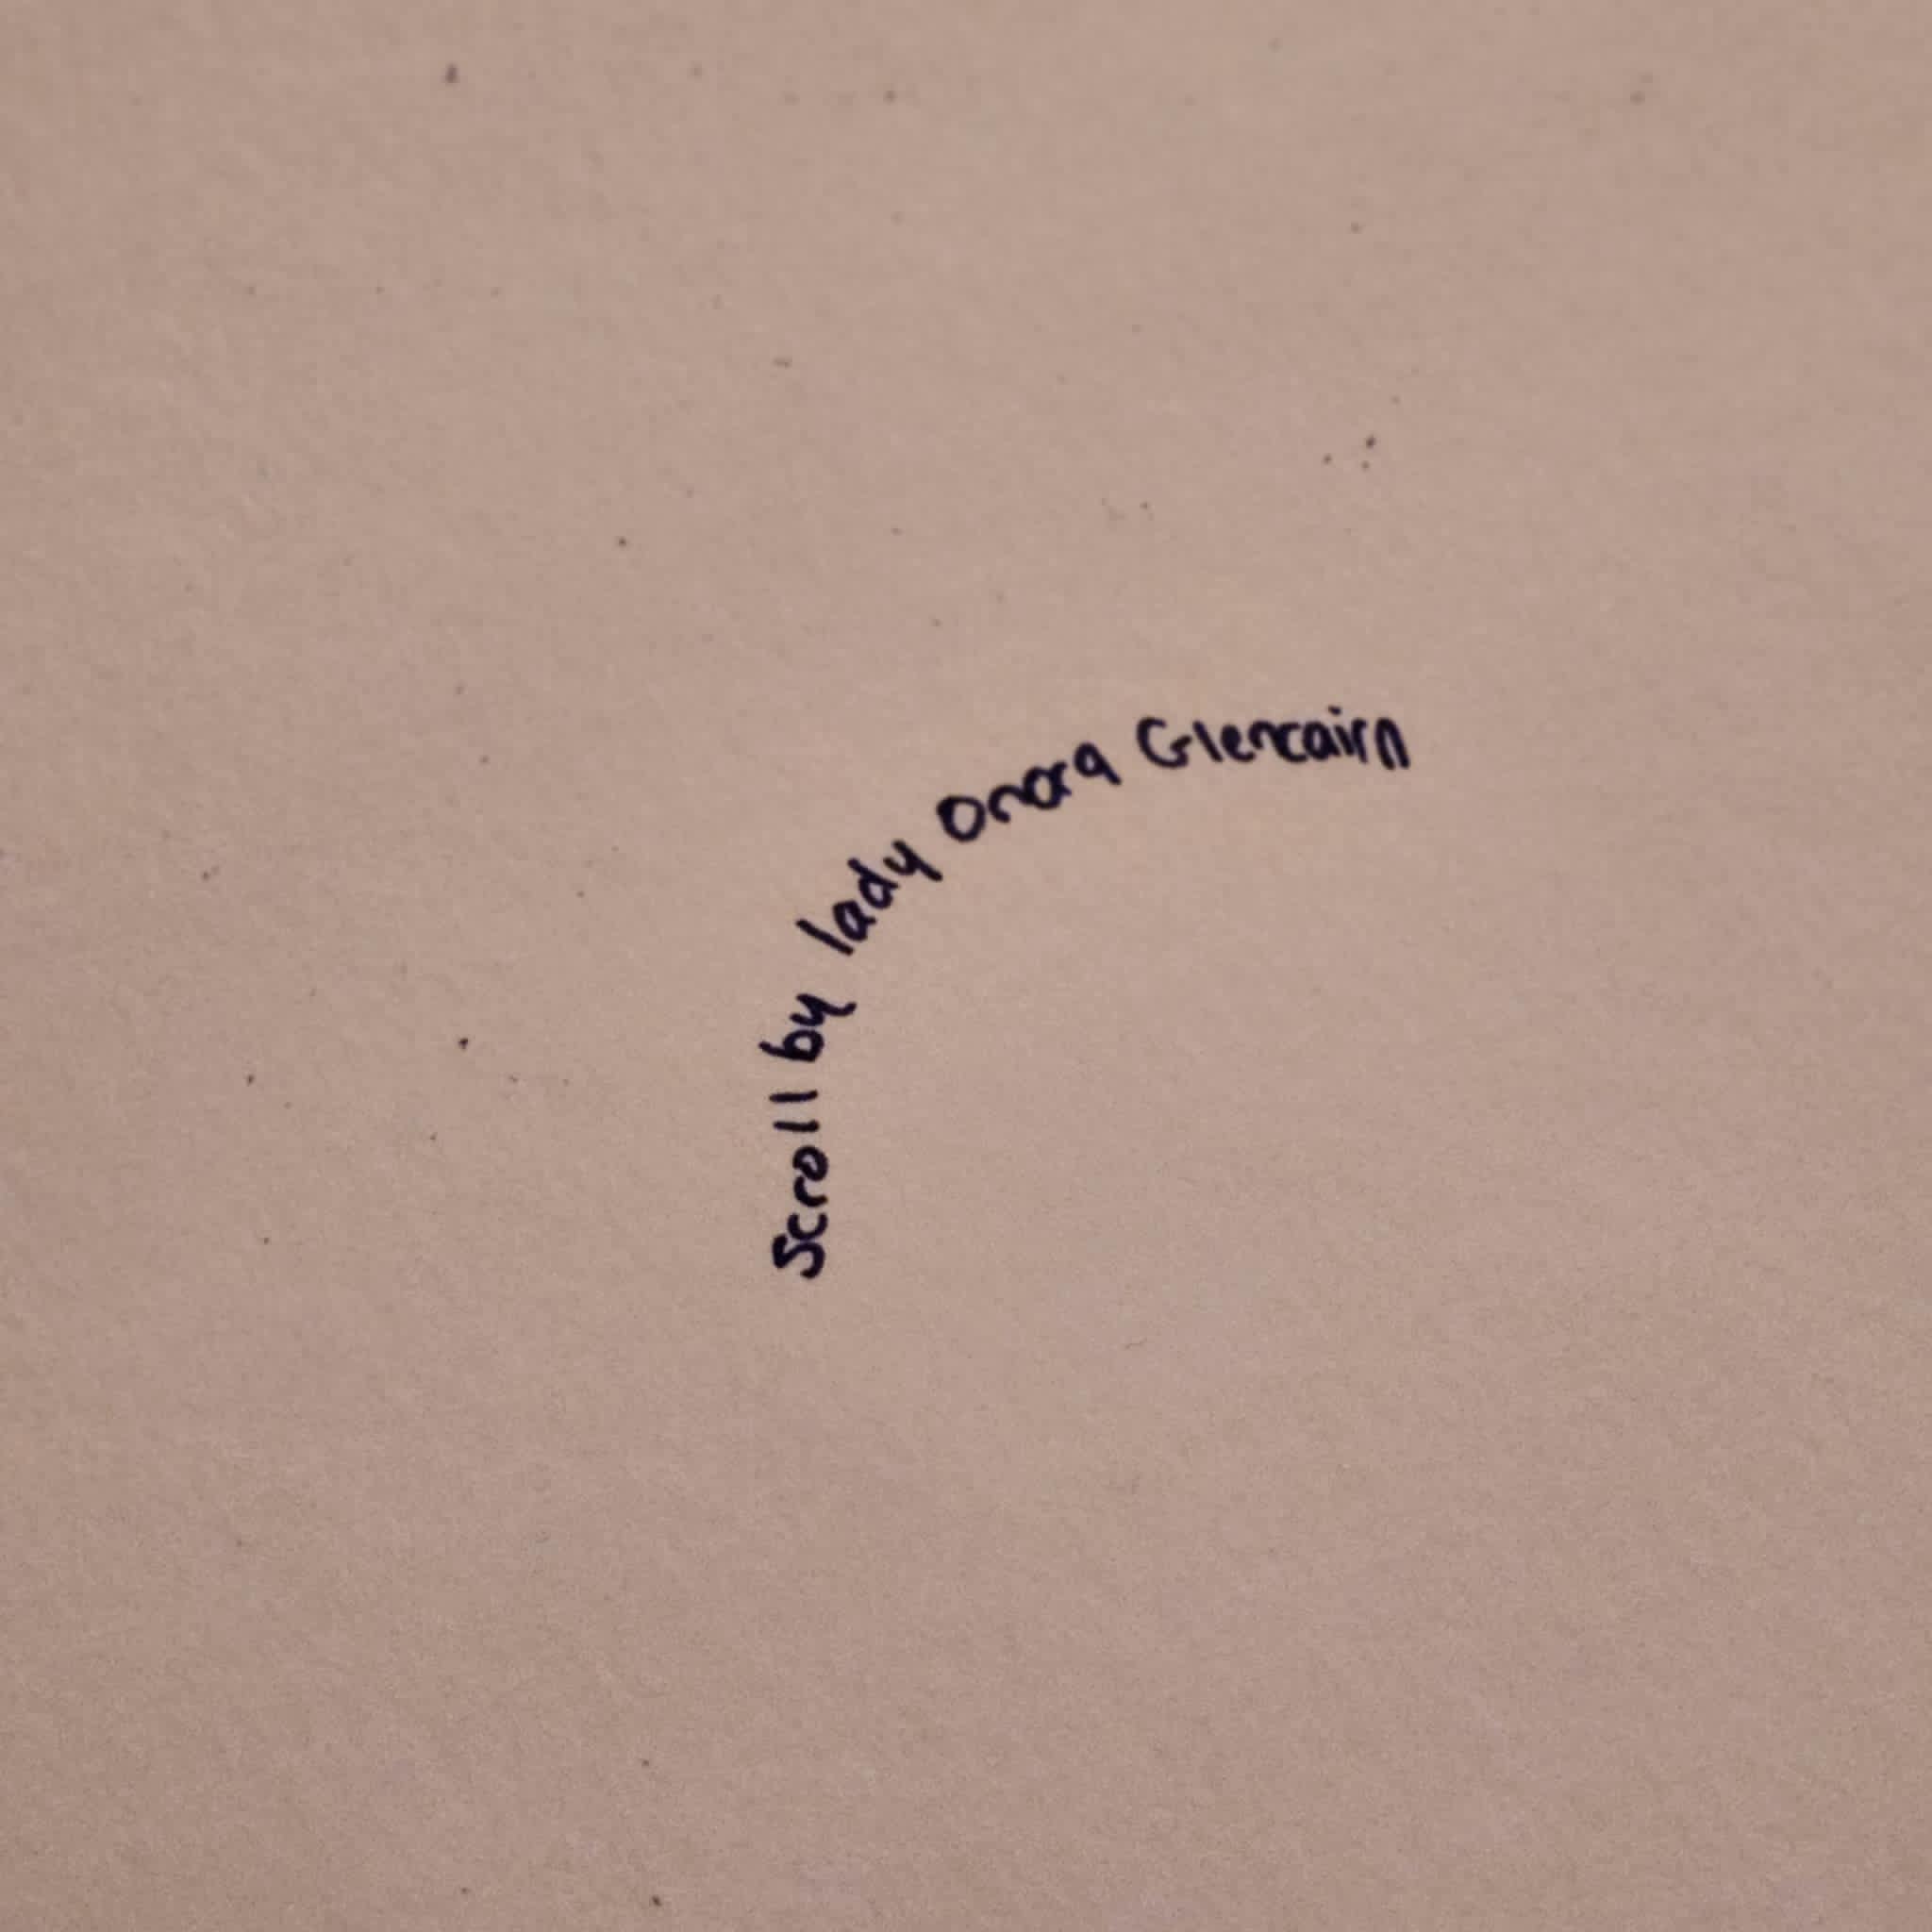 Scroll by lady Onora Glencairn